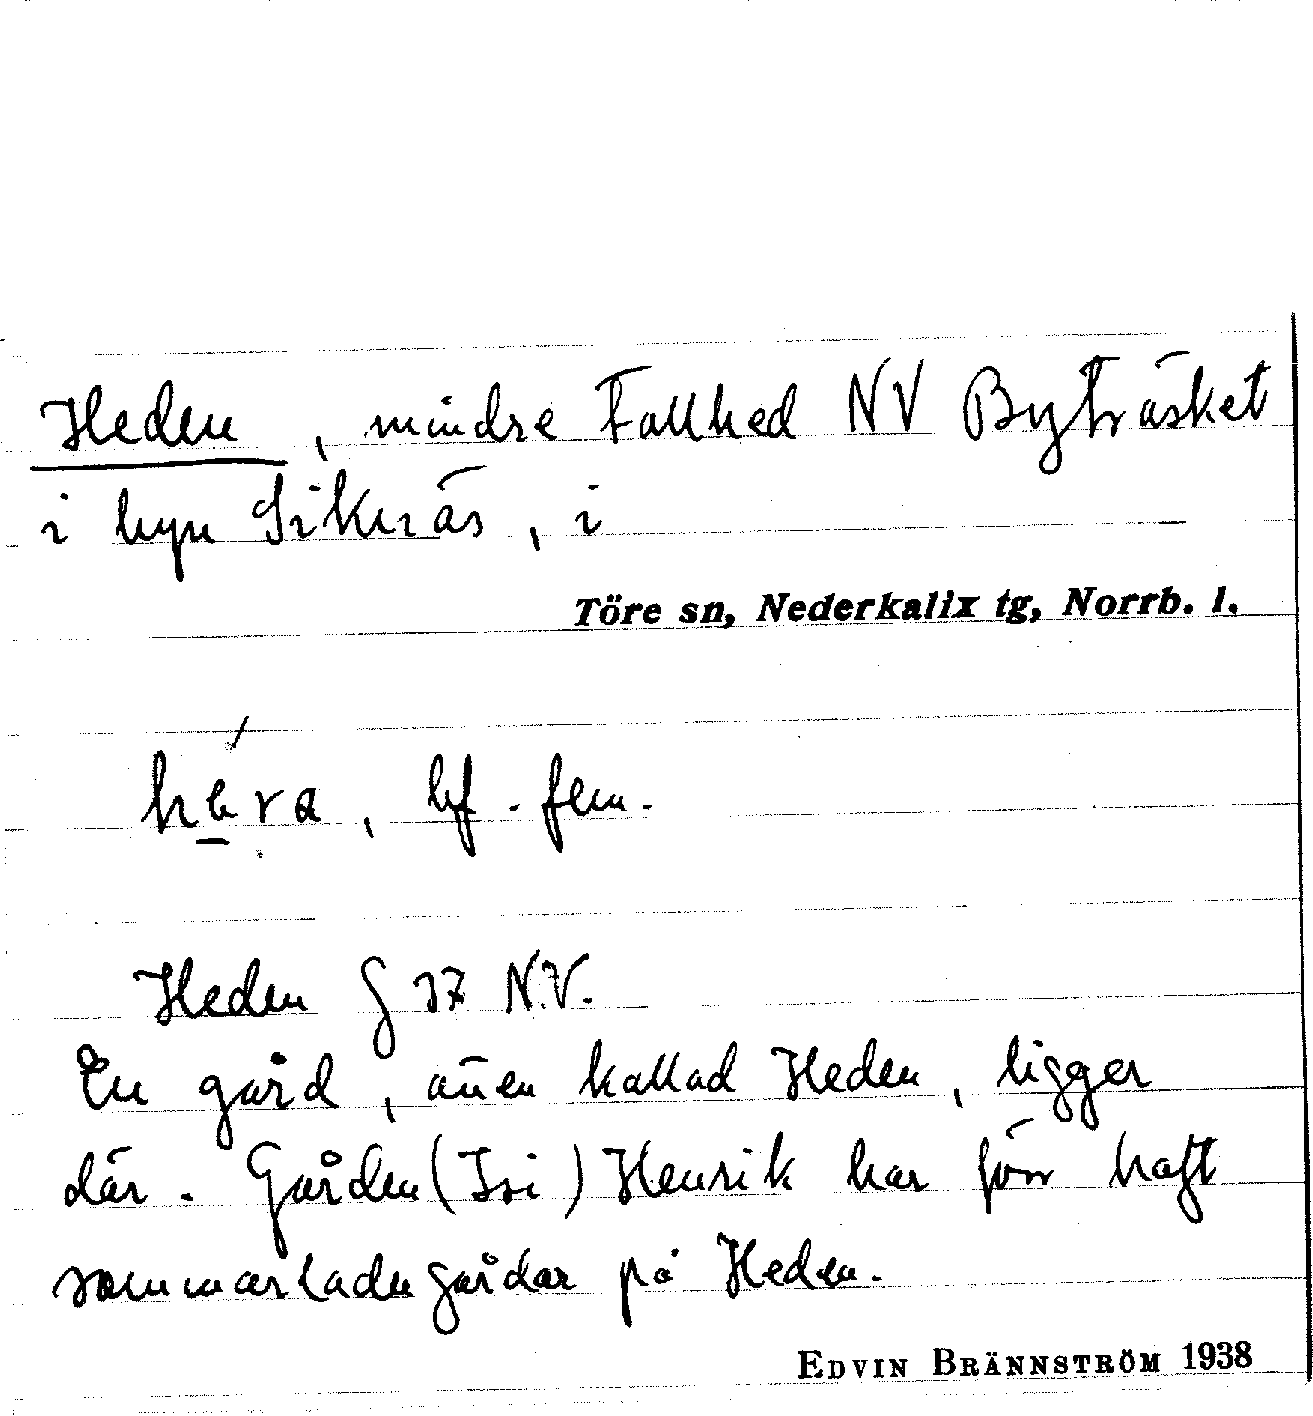 Heden, mindre tallhed NV Byträsket
i byn Siknäs, i
Töre sn, Nederkalix tg, Norrb. l.
héra, bf. fem.
Heden § 37 N.V.
En gård, även kallad Heden, ligger
där. Gården (Isi) Henrik har förr haft
sommarladugårdar på Heden.
EDVIN BRÄNNSTRÖM 1938